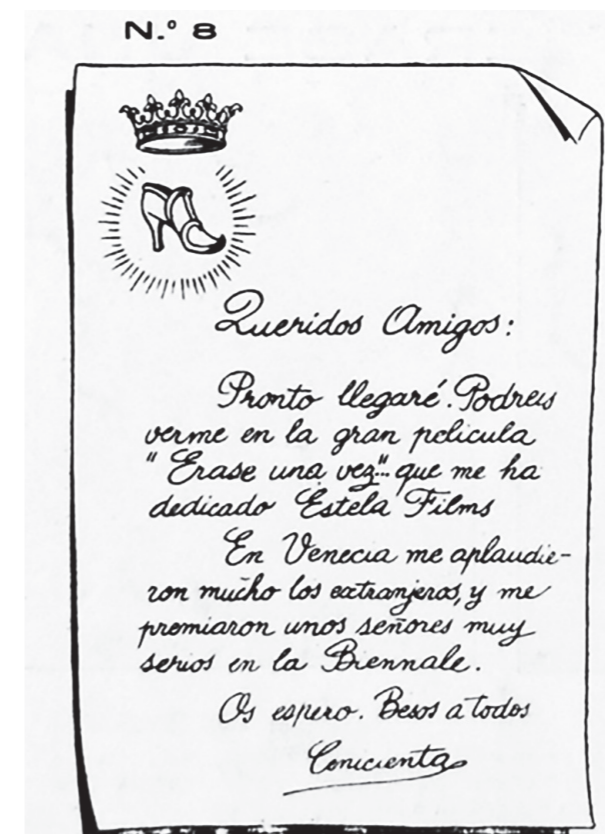 N.º 8
Queridos Amigos:
Pronto llegaré. Podreis
verme en la gran pelicula
"Erase una vez"... que me ha
dedicado Estela Films
En Venecia me aplaudie-
ron mucho los extranjeros, y me
premiaron unos señores muy
serios en la Biennale.
Os espero. Besos a todos
Cenicienta